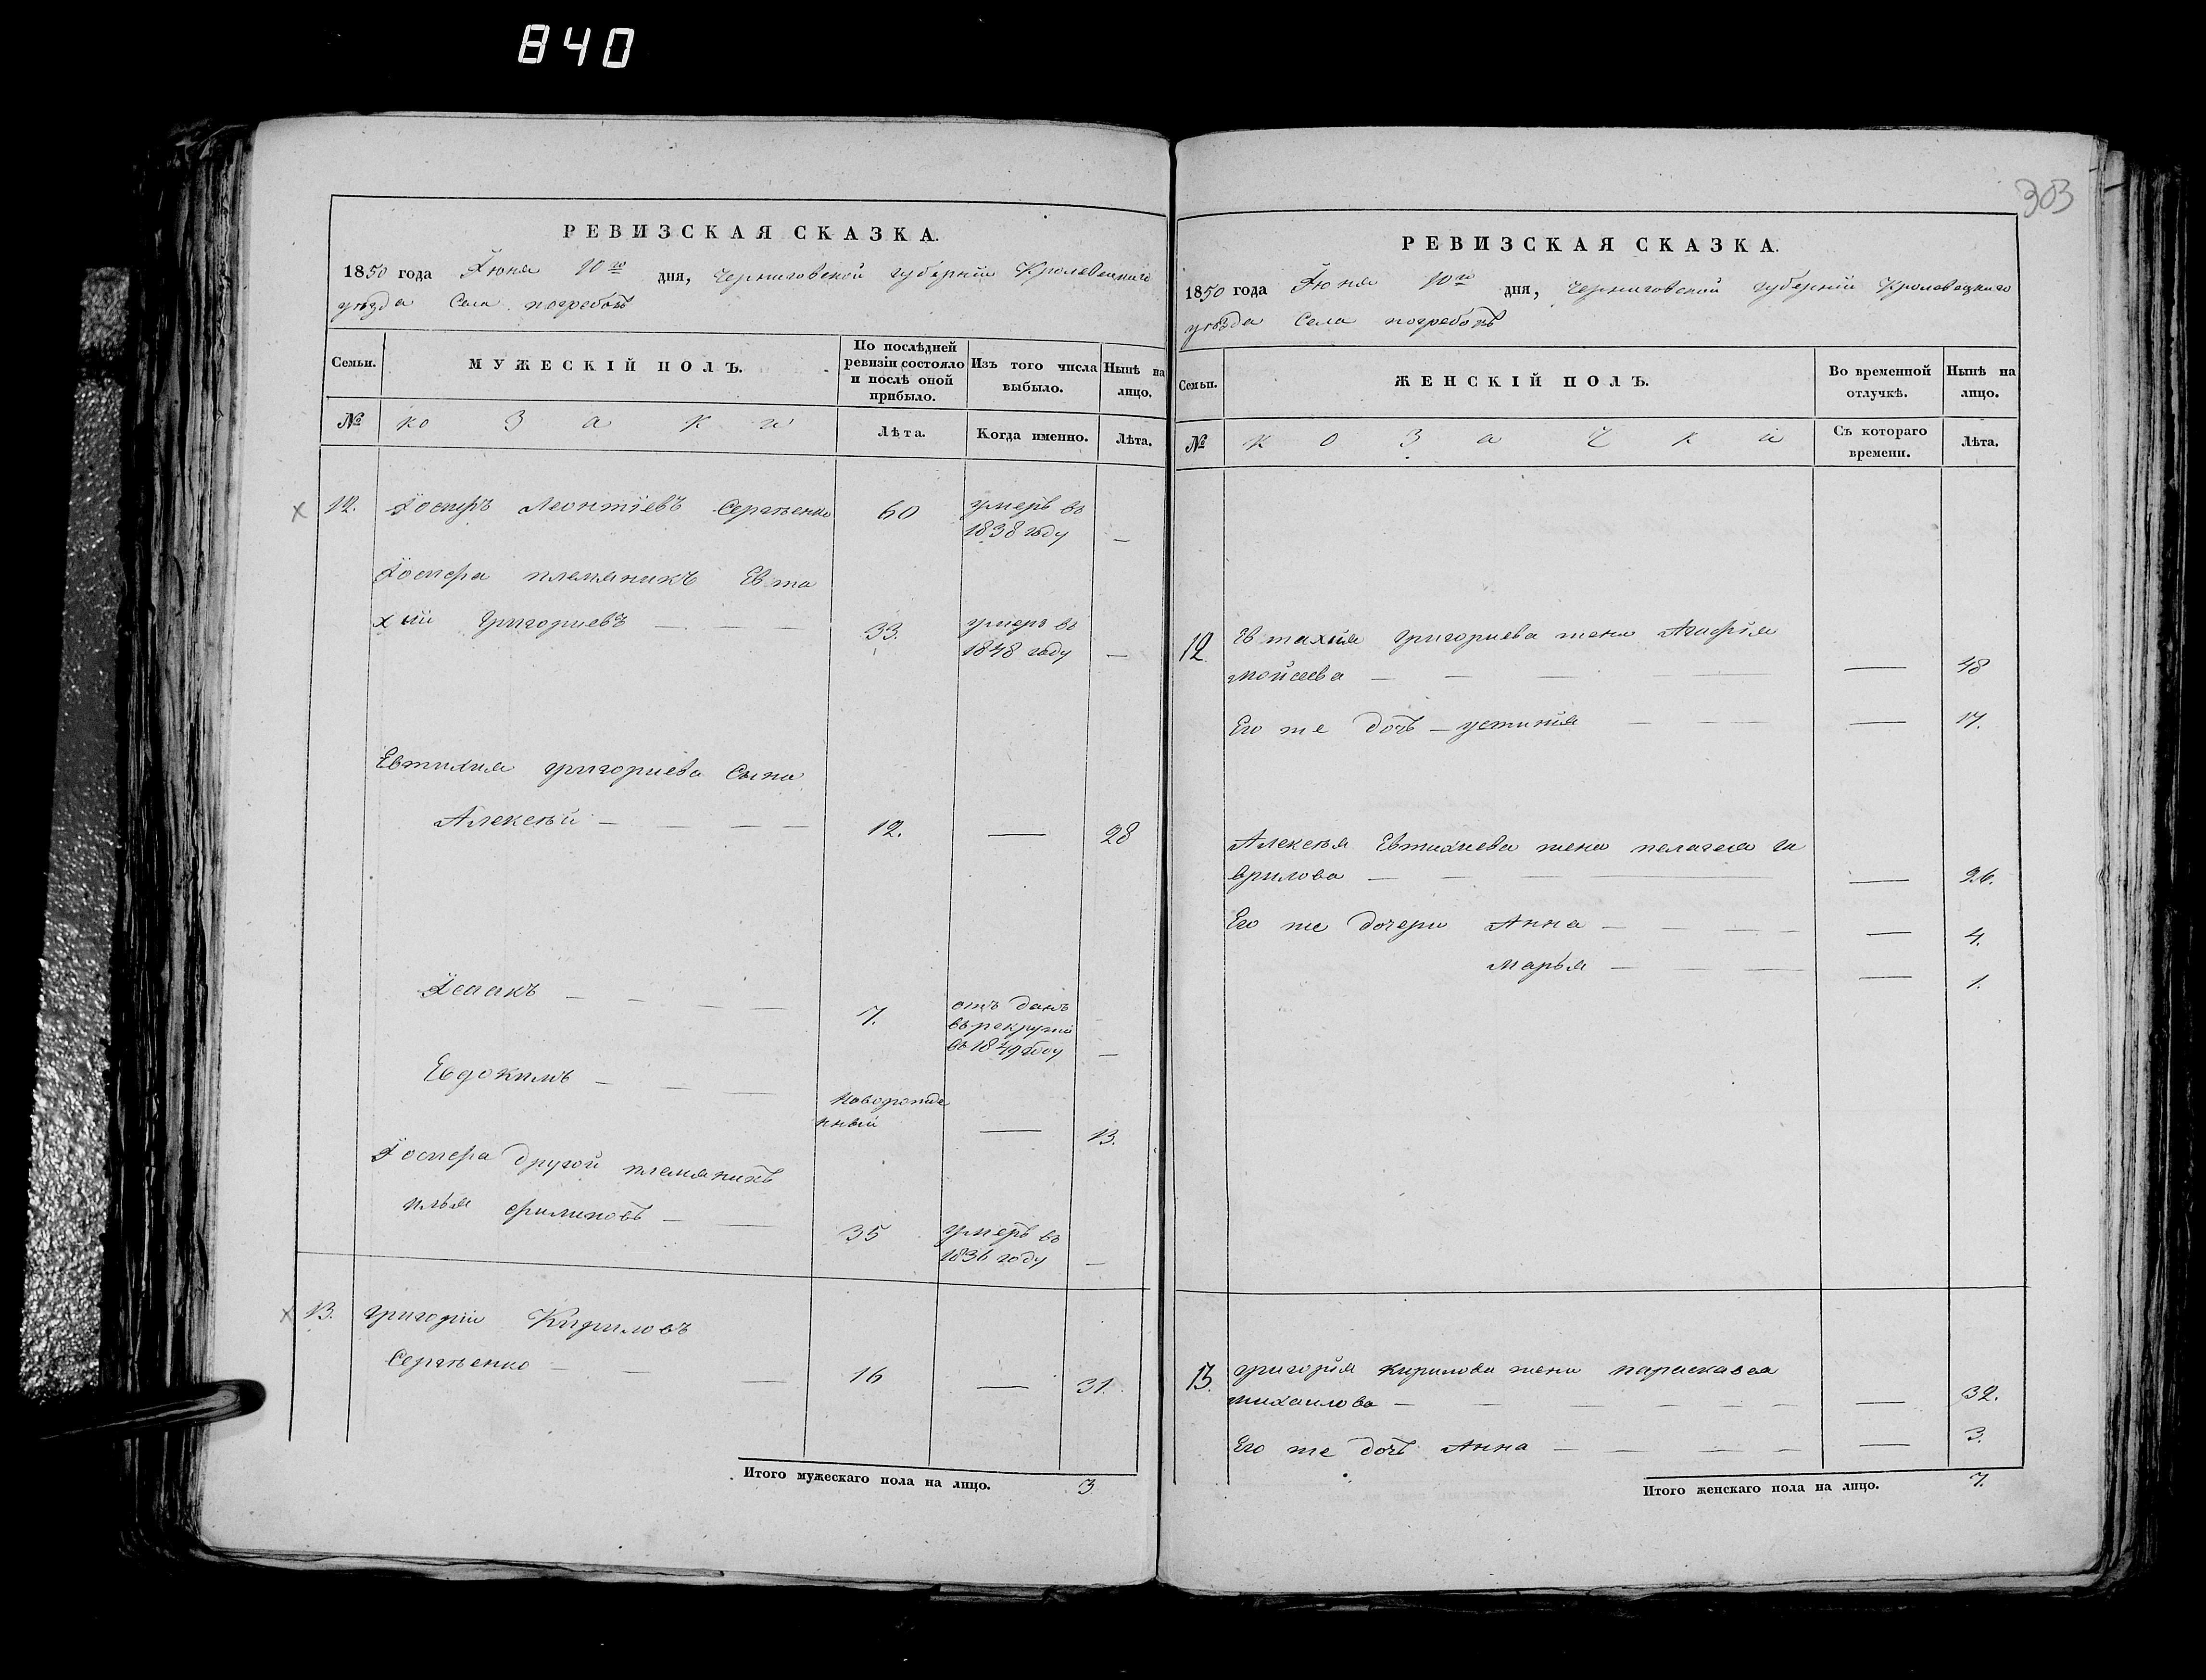 840
303
РЕВИЗСКАЯ СКАЗКА.
1850 года Іюня 10го дня, Черниговской губерніи Кролевецкаго
уѣзда Села погребовъ
Семьи.
МУЖЕСКІЙ ПОЛЪ.
По послѣдней ревизіи состояло и послѣ оной прибыло.
Изъ того числа выбыло.
Нынѣ на лицо.
№
козаки
Лѣта.
Когда именно.
Лѣта.
12. Іосифъ Леонтіевъ Сергѣенко 60 умеръ въ
1838 году —
Іосифа племяникъ Евти
хій Григориевъ — — — 33. умеръ въ
1848 году —
Евтихия григориева Сыны
Алексѣй — — — — 12. — 28
Ісаакъ — — — — 7. отъ данъ
въ рекруты
въ 1849 году —
Евдокимъ — — — новорожде
нный — 13.
Іосифа другой племяникъ
илья филиповъ — — 35 умеръ въ
1836 году —
13. григорій Кириловъ
Сергѣенко — — — 16 — 31.
Итого мужескаго пола на лицо. 3
РЕВИЗСКАЯ СКАЗКА.
1850 года Іюня 10го дня, Черниговской губерніи Кролевецкаго
уѣзда Села погребовъ
Семьи.
ЖЕНСКІЙ ПОЛЪ.
Во временной отлучкѣ.
Нынѣ на лицо.
№
козачки
Съ котораго времени.
Лѣта.
12. Евтихія григориева жена Агафія
мойсеева — — — — — 48
Его же дочь — устинія — — — — 17.
Алексѣя Евтихиева жена пелагея га
врилова — — — — 26.
Его же дочери Анна — — — — — 4.
марья — — — — 1.
13. григорія кирилова жена параскавея
михаилова — — — — — — — 32.
Его же дочь Анна — — — — — 3.
Итого женскаго пола на лицо. 7.